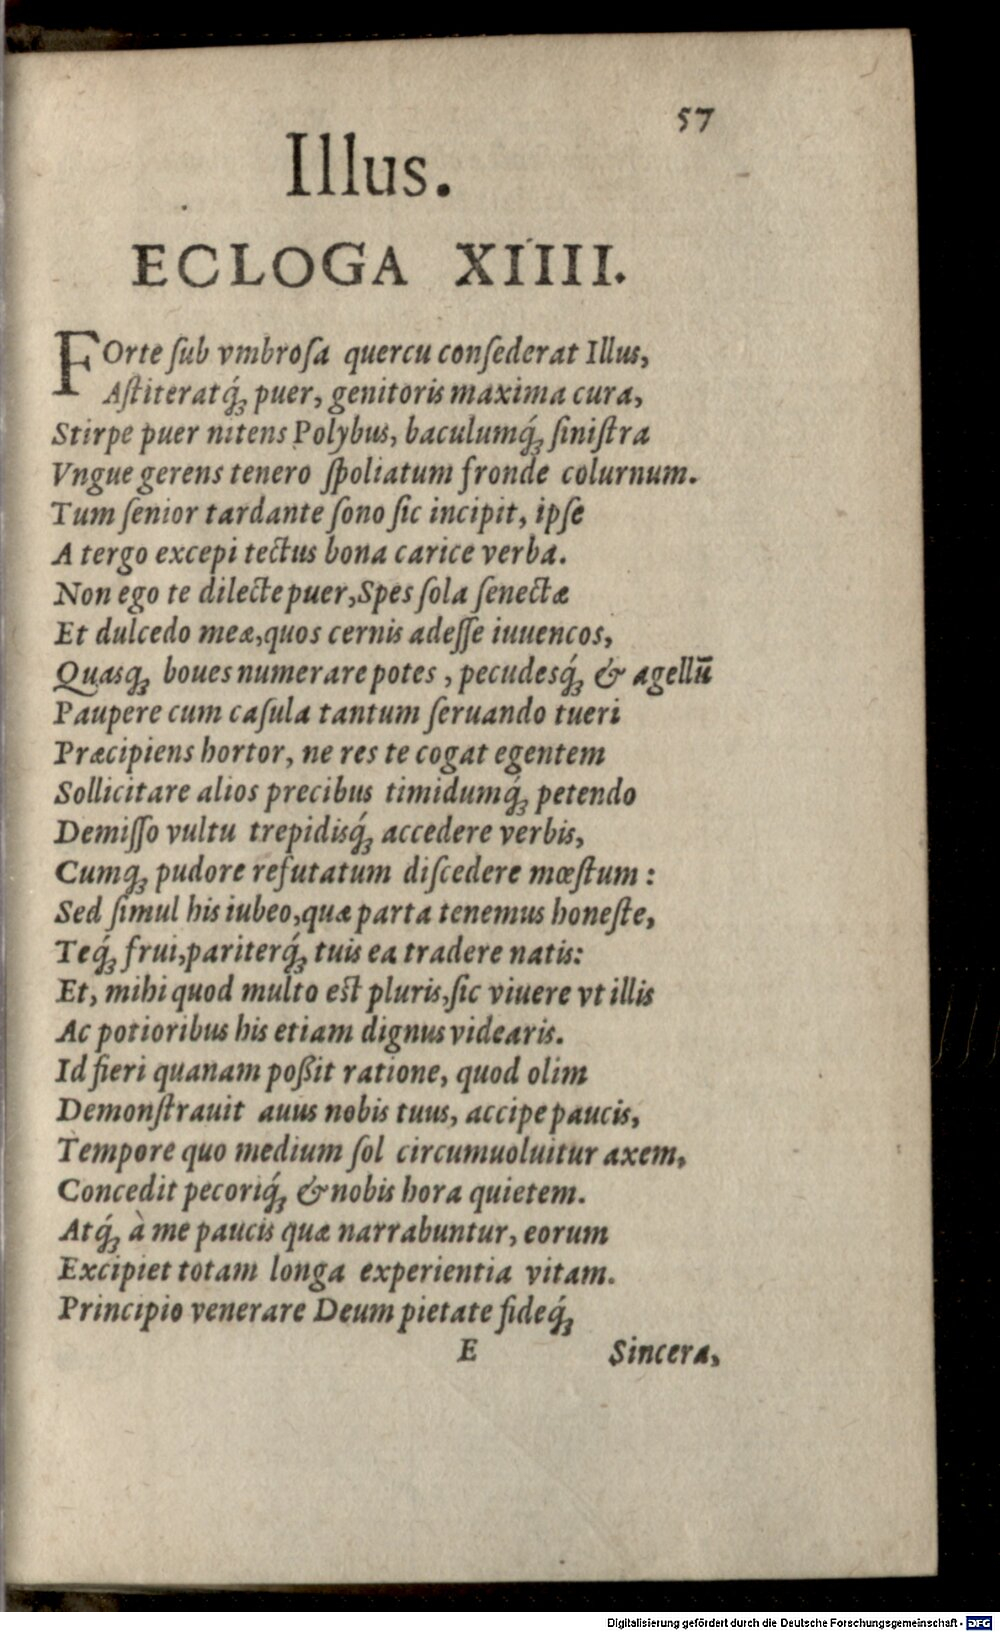 57
Illus.
ECLOGA XIIII.
FOrte ſub vmbroſa quercu conſederat Illus,
Aſtiteratq́ꝫ puer, genitoris maxima cura,
Stirpe puer nitens Polybus, baculumq́ꝫ ſiniſtra
Vngue gerens tenero ſpoliatum fronde colurnum.
Tum ſenior tardante ſono ſic incipit, ipſe
A tergo excepi tectus bona carice verba.
Non ego te dilecte puer, Spes ſola ſenectæ
Et dulcedo meæ, quos cernis adeſſe iuuencos,
Quasqꝫ boues numerare potes, pecudesq́ꝫ & agellū
Paupere cum caſula tantum ſeruando tueri
Præcipiens hortor, ne res te cogat egentem
Sollicitare alios precibus timidumq́ꝫ petendo
Demiſſo vultu trepidisq́ꝫ accedere verbis,
Cumqꝫ pudore refutatum diſcedere mœſtum:
Sed ſimul his iubeo, quæ parta tenemus honeſte,
Teq́ꝫ frui, pariterq́ꝫ tuis ea tradere natis:
Et, mihi quod multo est pluris, ſic viuere vt illis
Ac potioribus his etiam dignus videaris.
Id fieri quanam poßit ratione, quod olim
Demonſtrauit auus nobis tuus, accipe paucis,
Tempore quo medium ſol circumuoluitur axem,
Concedit pecoriq́ꝫ & nobis hora quietem.
Atq́ꝫ à me paucis quæ narrabuntur, eorum
Excipiet totam longa experientia vitam.
Principio venerare Deum pietate fideq́ꝫ
E Sincera,
Digitalisierung gefördert durch die Deutsche Forschungsgemeinschaft - DFG